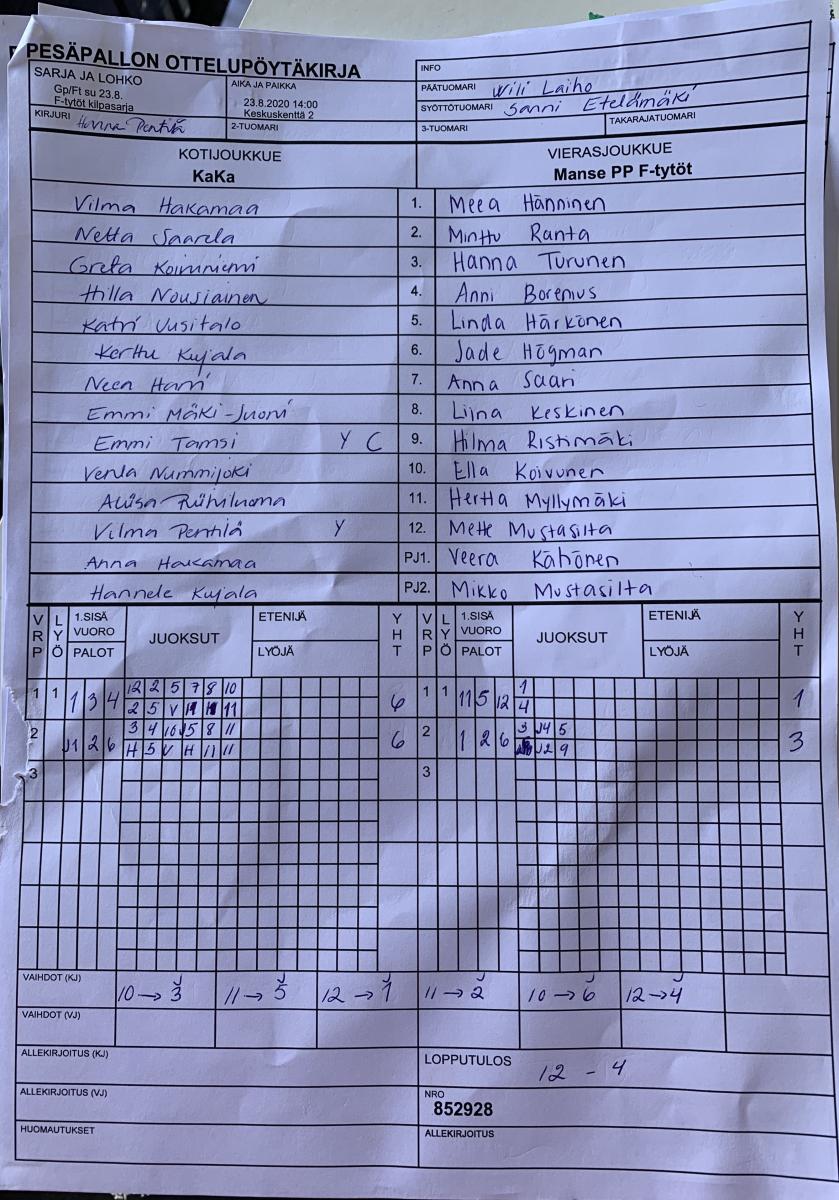 PESÄPALLON OTTELUPÖYTÄKIRJA
SARJA JA LOHKO
Gp/Ft su 23.8.
F-tytöt kilpasarja
AIKA JA PAIKKA
23.8.2020 14:00
Keskuskenttä 2
KIRJURI Hanna Penttilä
2-TUOMARI
INFO
PÄÄTUOMARI Wili Laiho
SYÖTTÖTUOMARI Sanni Etelämäki
3-TUOMARI
TAKARAJATUOMARI
KOTIJOUKKUE
KaKa
VIERASJOUKKUE
Manse PP F-tytöt
Vilma Hakamaa 1. Meea Hänninen
Netta Saarela 2. Minttu Ranta
Greta Koivuniemi 3. Hanna Turunen
Hilla Nousiainen 4. Anni Borenius
Katri Uusitalo 5. Linda Härkönen
Kerttu Kujala 6. Jade Högman
Neea Harri 7. Anna Saari
Emmi Mäki-Juoni 8. Liina Keskinen
Emmi Tamsi Y C 9. Hilma Ristimäki
Venla Nummijoki 10. Ella Koivunen
11. Hertta Myllymäki
Vilma Penttilä Y 12. Mette Mustasilta
Anna Hakamaa PJ1. Veera Kähönen
Hannele Kujala PJ2. Mikko Mustasilta
VRP LYÖ 1.SISÄ VUORO PALOT JUOKSUT ETENIJÄ LYÖJÄ YHT VRP LYÖ 1.SISÄ VUORO PALOT JUOKSUT ETENIJÄ LYÖJÄ YHT
1 1 1 3 4 12 2 5 7 8 10 6 1 1 11 5 12 1 1
2 5 V 11 4
2 J1 2 6 3 4 10 J5 8 11 6 2 1 2 6 3 J4 5 3
H 5 V H 11 11 J2 9
3 3
VAIHDOT (KJ) 10→3 11→5 12→1 11→2 10→6 12→4
VAIHDOT (VJ)
ALLEKIRJOITUS (KJ)
LOPPUTULOS 12 - 4
ALLEKIRJOITUS (VJ)
NRO
852928
HUOMAUTUKSET
ALLEKIRJOITUS